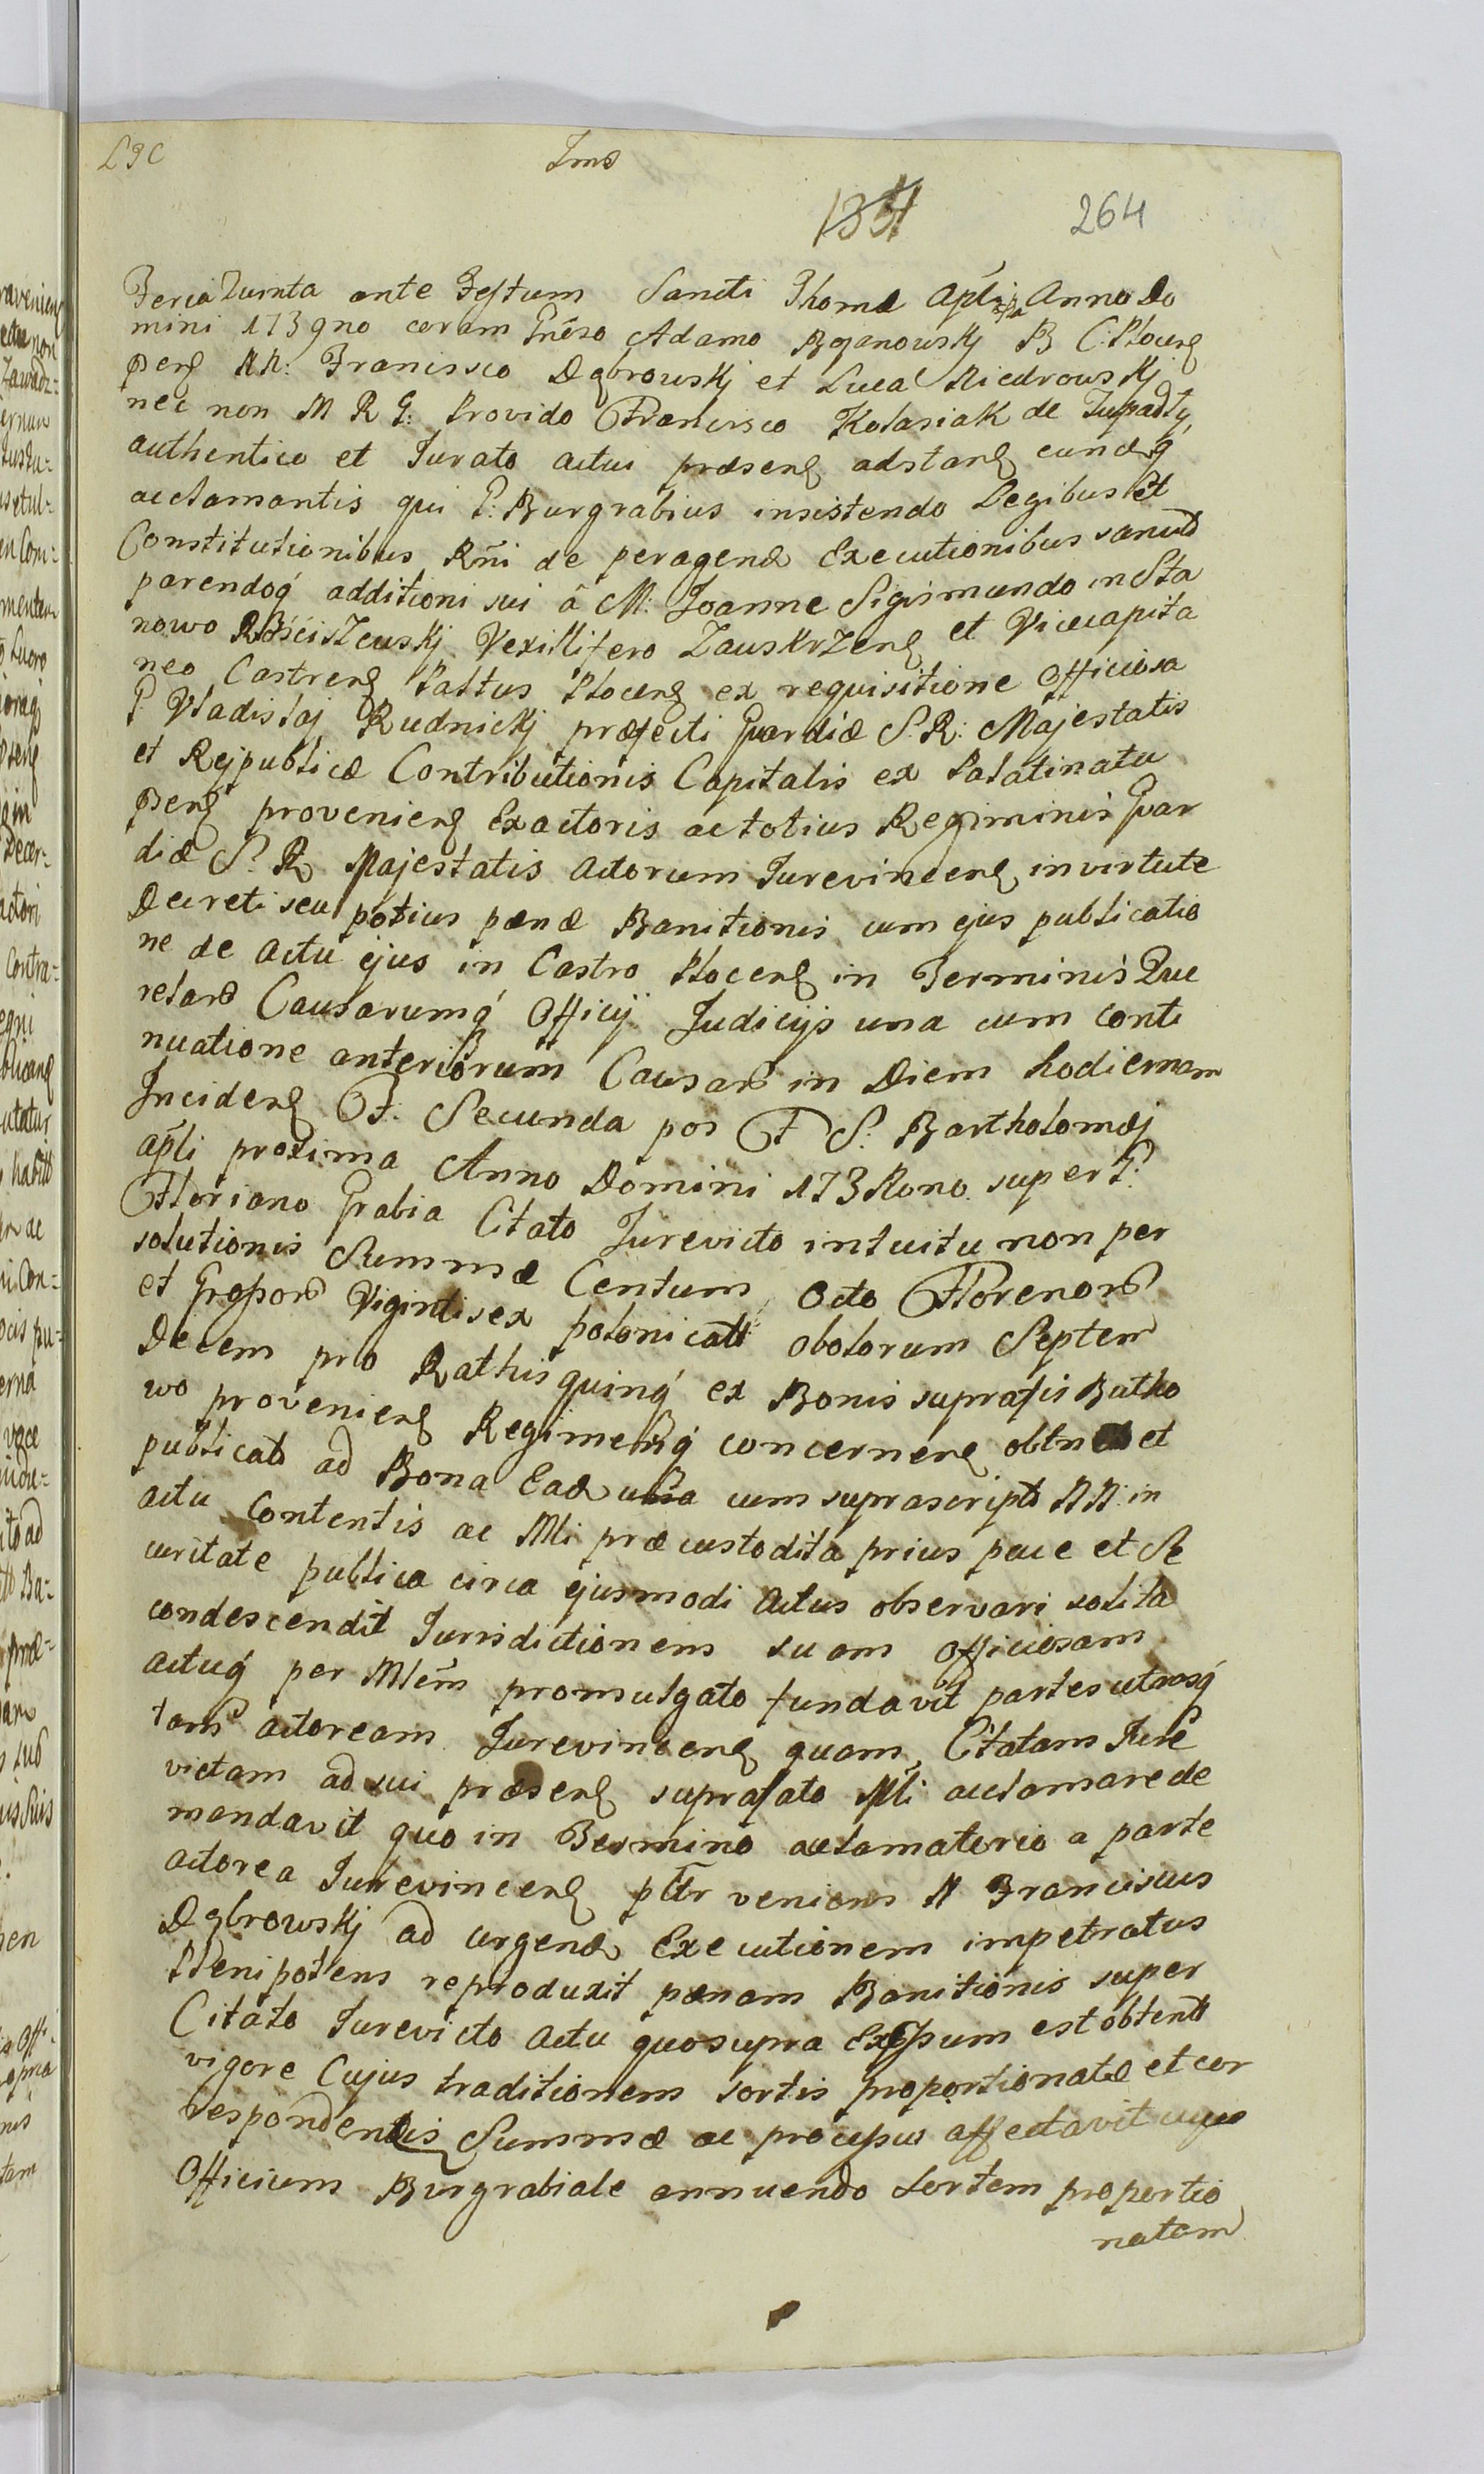 L9C
Ims
1351
264
Feria Quinta ante Festum Sancti Thomæ Apli Anno Do
mini 1739no coram Gnëso Adamo Bojanowskj B C: Plocens
pens NN: Francisco Dąbrowskj et Luca Niedrowskj
nec non M R G: Provido Francisco Kolasiak de Tupadly
authentico et Iurato actui præsens adstans eundeq́
acclamantis qui G: Burgrabius insistendo Legibus et
Constitutionibus Rñi de peragend Executionibus sancitd
parendoq́ additioni sui â M: Joanne Sigismundo in Sta
nowo Rościszewskj Vexillifero Zauskrzens et Vicecapita
neo Castrens Palttus Plocens ex requisitione Officiosa
G Vladislaj Rudnickj præfecti Gvardiæ S. R: Majestatis
et Rejpublicæ Contributionis Capitalis ex Palatinatu
pens proveniens Exactoris ac totius Regiminis Gvar
diæ S. R Majestatis Actorum Iurevincens in virtute
Decreti seu potius pænæ Banitionis cum ejus publicatio
ne de Actu ejus in Castro Plocens in Terminis Que
relard Causarumq́ Officij Judicijs una cum Conti
nuatione anteriorum Causard in Diem hodiernam
Incidens F. Secunda pos F S: Bartholomæj
apli proxima Anno Domini 1738vono super G:
Floriano Grabia Citato Jurevicto intuitu non per
solutionis Summæ Centum Octo Florenord
et Grossord Viginti sex polonicald obolorum Septem
Decem pro Rathis quinq́ ex Bonis suprafis Butko
wo proveniens Regimenq́ concernens obtn et
publicatd ad Bona Eadæ una cum suprascriptd NN: in
actu Contentis ac Mli præcustodita prius pace et Se
curitate publica circa ejusmodi Actus observari solita
condescendit Iurisdictionem suam officiosam
actuq́ per Mlem promulgato fundavit partes utrasq́
tam actoream Jurevincens quam Citatam Jure
victam ad sui præsens suprafato Mli acclamare de
mandavit quo in Termino acclamatorio a parte
actorea Iurevincens pltr veniens N Franciscus
Dąbrowskj ad urgend Executionem impetratus
Plenipotens reproduxit pænam Banitionis super
Citato Iurevicto Actu quo supra Expsum est obtentd
vigore Cujus traditionem sortis proportionatæ et cor
respondentis Summæ ac processus affectavit cujus
Officium Burgrabiale annuendo Sortem proportio
natam